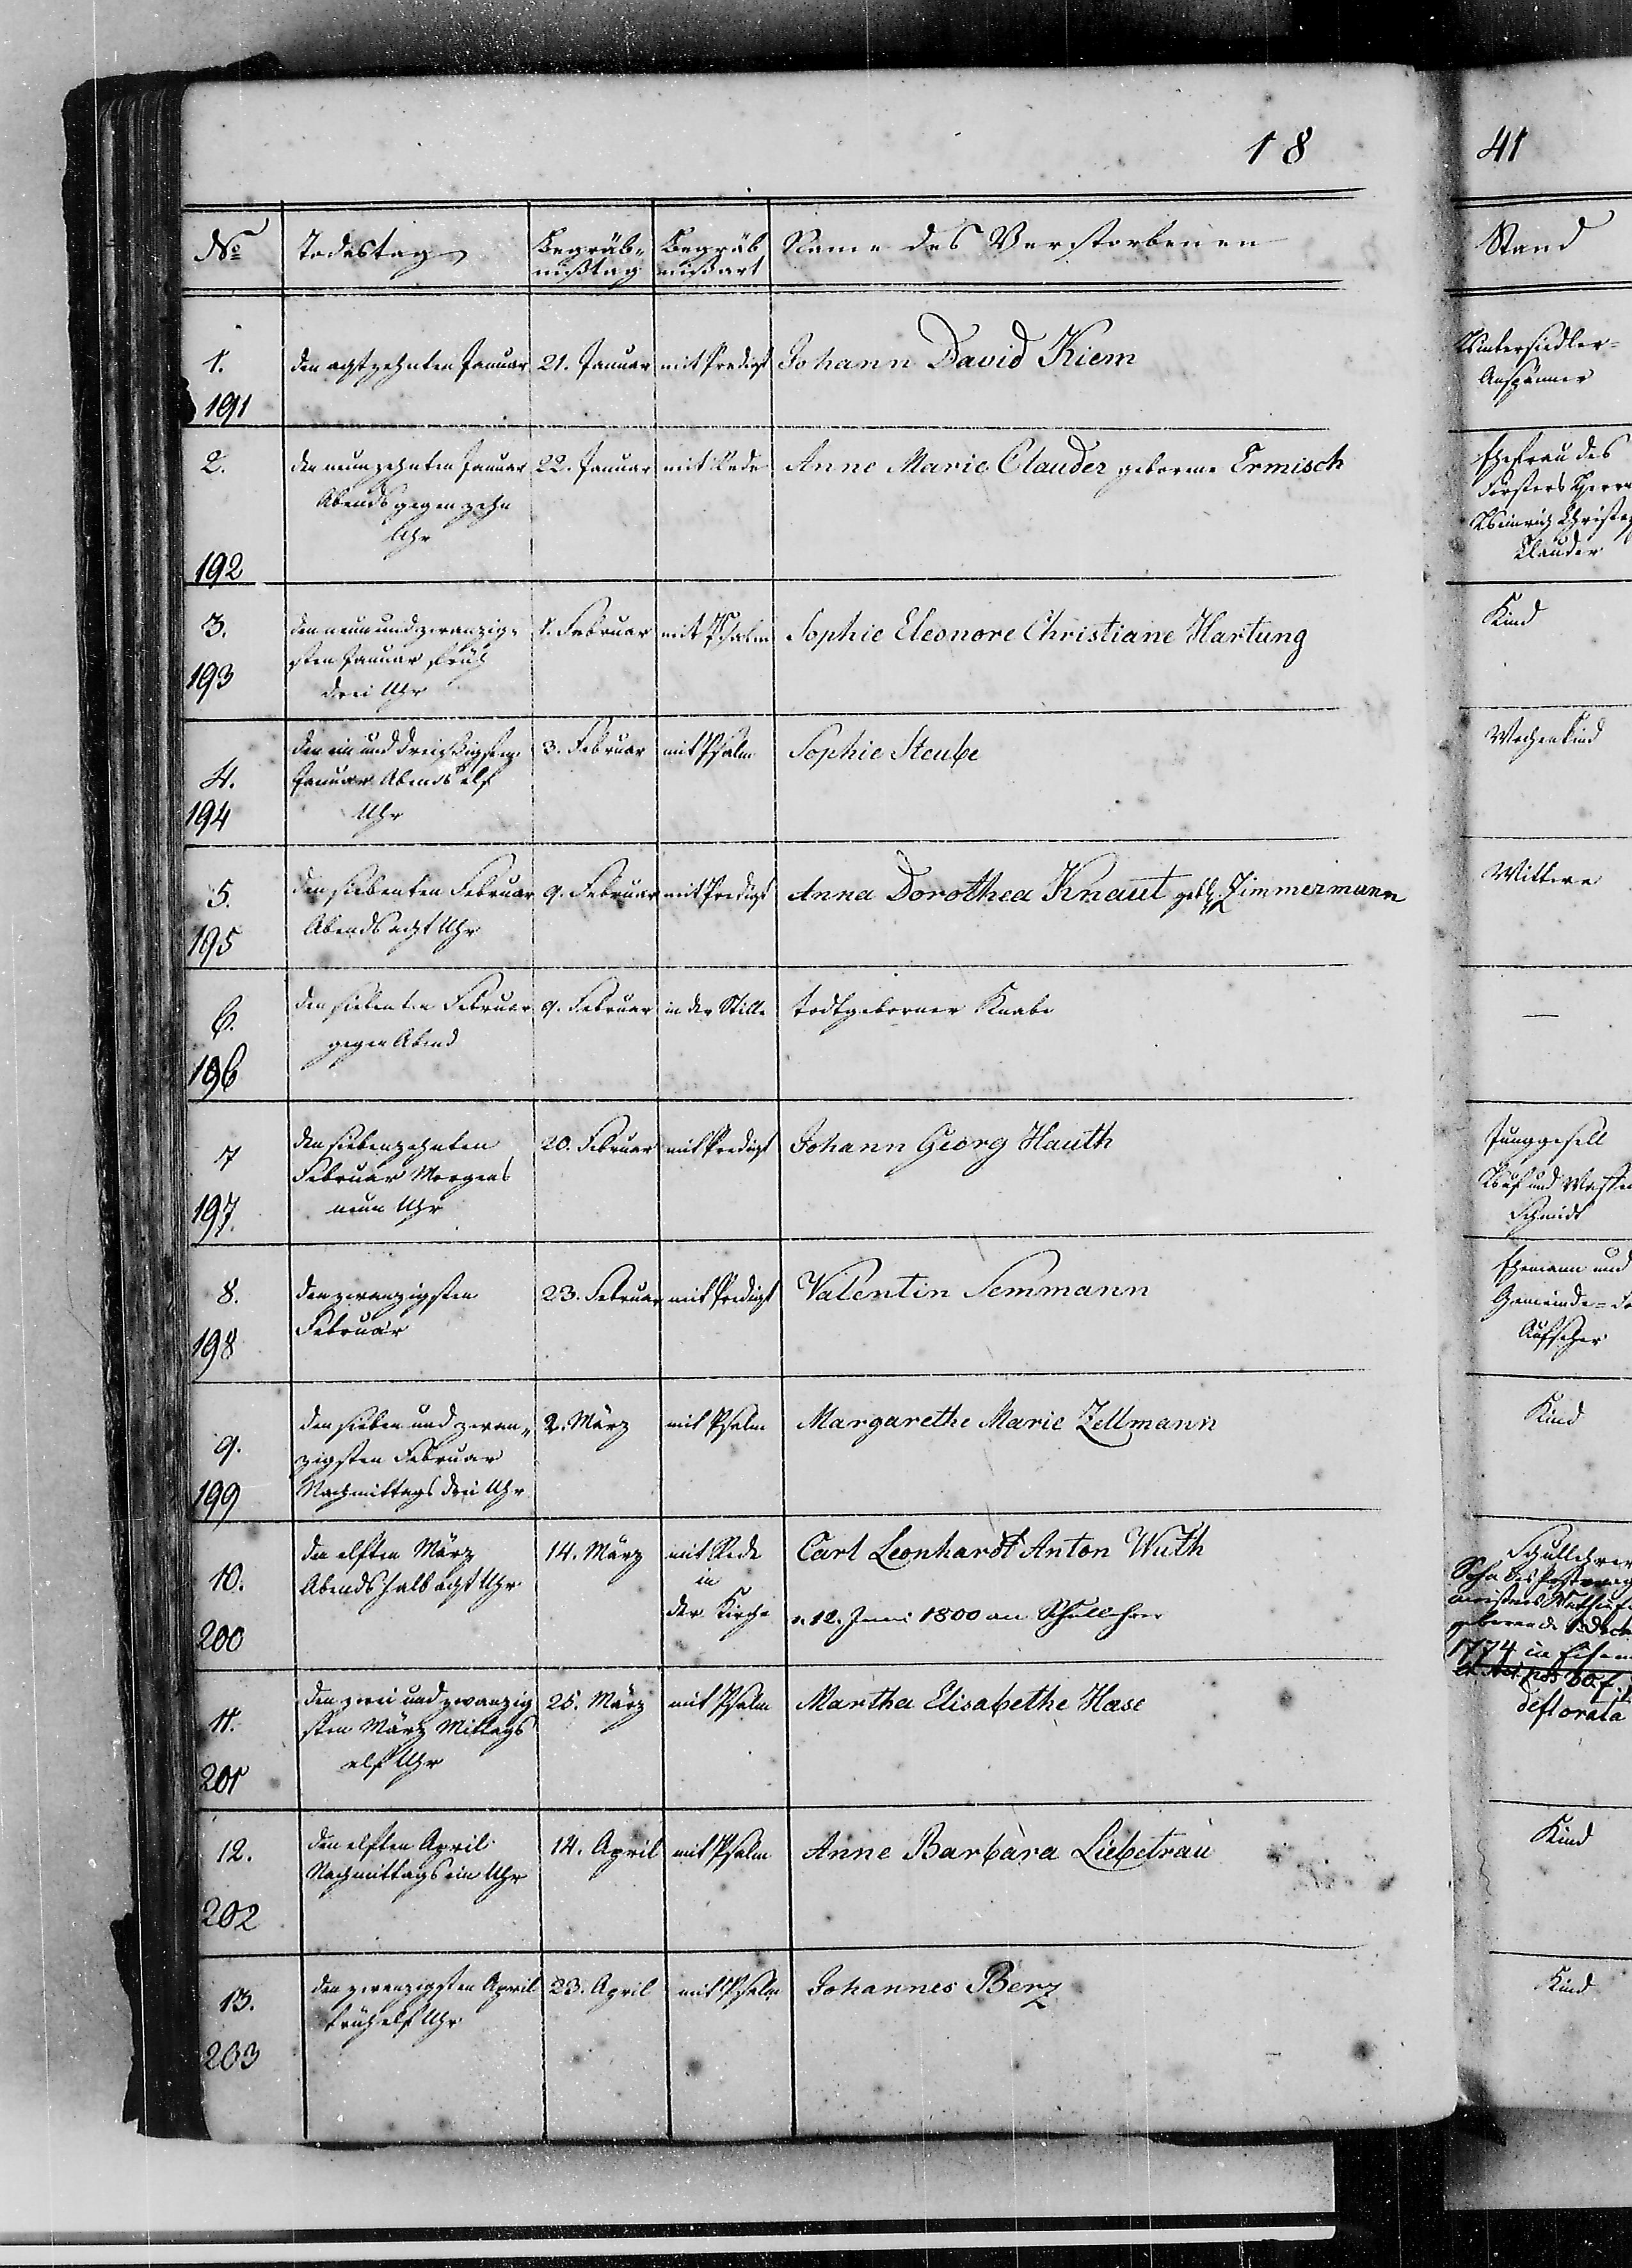 18
41
No Todestag Begräb- Begräb Name des Verstorbenen Stand
nißtag nißart
1. den achtzehnten Januar 21. Januar mit Predigt Johann David Kiem Hintersiedler-
Anspänner
191
2. den neunzehnten Januar 22. Januar mit Rede Anne Marie Clauder geborene Ermisch Ehefrau des
Abends gegen zehn Försters Herrn
Uhr Heinrich Christoph
Clauder
192
3. den neun und zwanzig- 1. Februar mit Psalm Sophie Eleonore Christiane Hartung Kind
sten Januar früh
193 drei Uhr
den ein und dreißigsten 3. Februar mit Psalm Sophie Steube Wochenkind
4. Januar Abends elf
194 Uhr
5. den siebenten Februar 9. Februar mit Predigt Anna Dorothea Knaut geb. Zimmermann Wittwe
195 Abends acht Uhr
den siebenten Februar 9. Februar in der Stille todtgeborner Knabe —
6. gegen Abend
196
7 den siebenzehnten 20. Februar mit Predigt Johann Georg Hauth Junggesell
Februar Morgens Huf und Waffen
197. neun Uhr Schmidt
8. den zwanzigsten 23. Februar mit Predigt Valentin Semmann Ehemann und
Februar Gemeinde-
198 Aufseher
den sieben und zwan- 2. März mit Psalm Margarethe Marie Zellmann Kind
9. zigsten Februar
199 Nachmittags drei Uhr
den elften März 14. März mit Rede Carl Leonhardt Anton Wuth Schullehrer
10. Abends halb acht Uhr in Sohn des
der Kirche v. 12. Juni 1800 an Schullehrer geboren d.
200 1774 in
den zwei und zwanzig 25. März mit Psalm Martha Elisabethe Hase deflorata
11. sten März Mittags
201 elf Uhr
12. den elften April 14. April mit Psalm Anne Barbara Liebetrau Kind
Nachmittags ein Uhr
202
13. den zwanzigsten April 23. April mit Psalm Johannes Berz Kind
früh elf Uhr
203